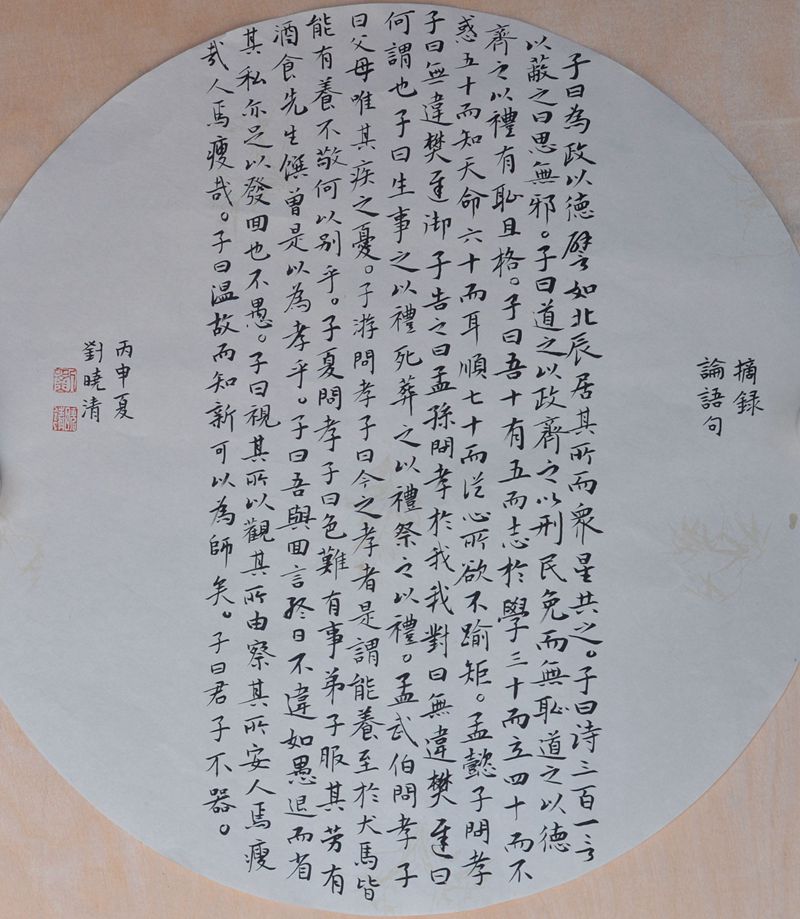 摘録
論語句
子曰為政以德譬如北辰居其所而衆星共之。子曰诗三百一言
以蔽之曰思無邪。子曰道之以政齊之以刑民免而無恥道之以德
齊之以禮有恥且格。子曰吾十有五而志於學三十而立四十而不
惑五十而知天命六十而耳順七十而從心所欲不踰矩。孟懿子問孝
子曰無違樊遲御子告之曰孟孫問孝於我我對曰無違樊遲曰
何謂也子曰生事之以禮死葬之以禮祭之以禮。孟武伯問孝子
曰父母唯其疾之憂。子游問孝子曰今之孝者是謂能養至於犬馬皆
能有養不敬何以别乎。子夏問孝子曰色難有事弟子服其劳有
酒食先生饌曾是以為孝乎。子曰吾與回言終日不違如愚退而省
其私亦足以發回也不愚。子曰視其所以觀其所由察其所安人焉瘦
哉人焉瘦哉。子曰温故而知新可以為師矣。子曰君子不器。
丙申夏
劉曉清